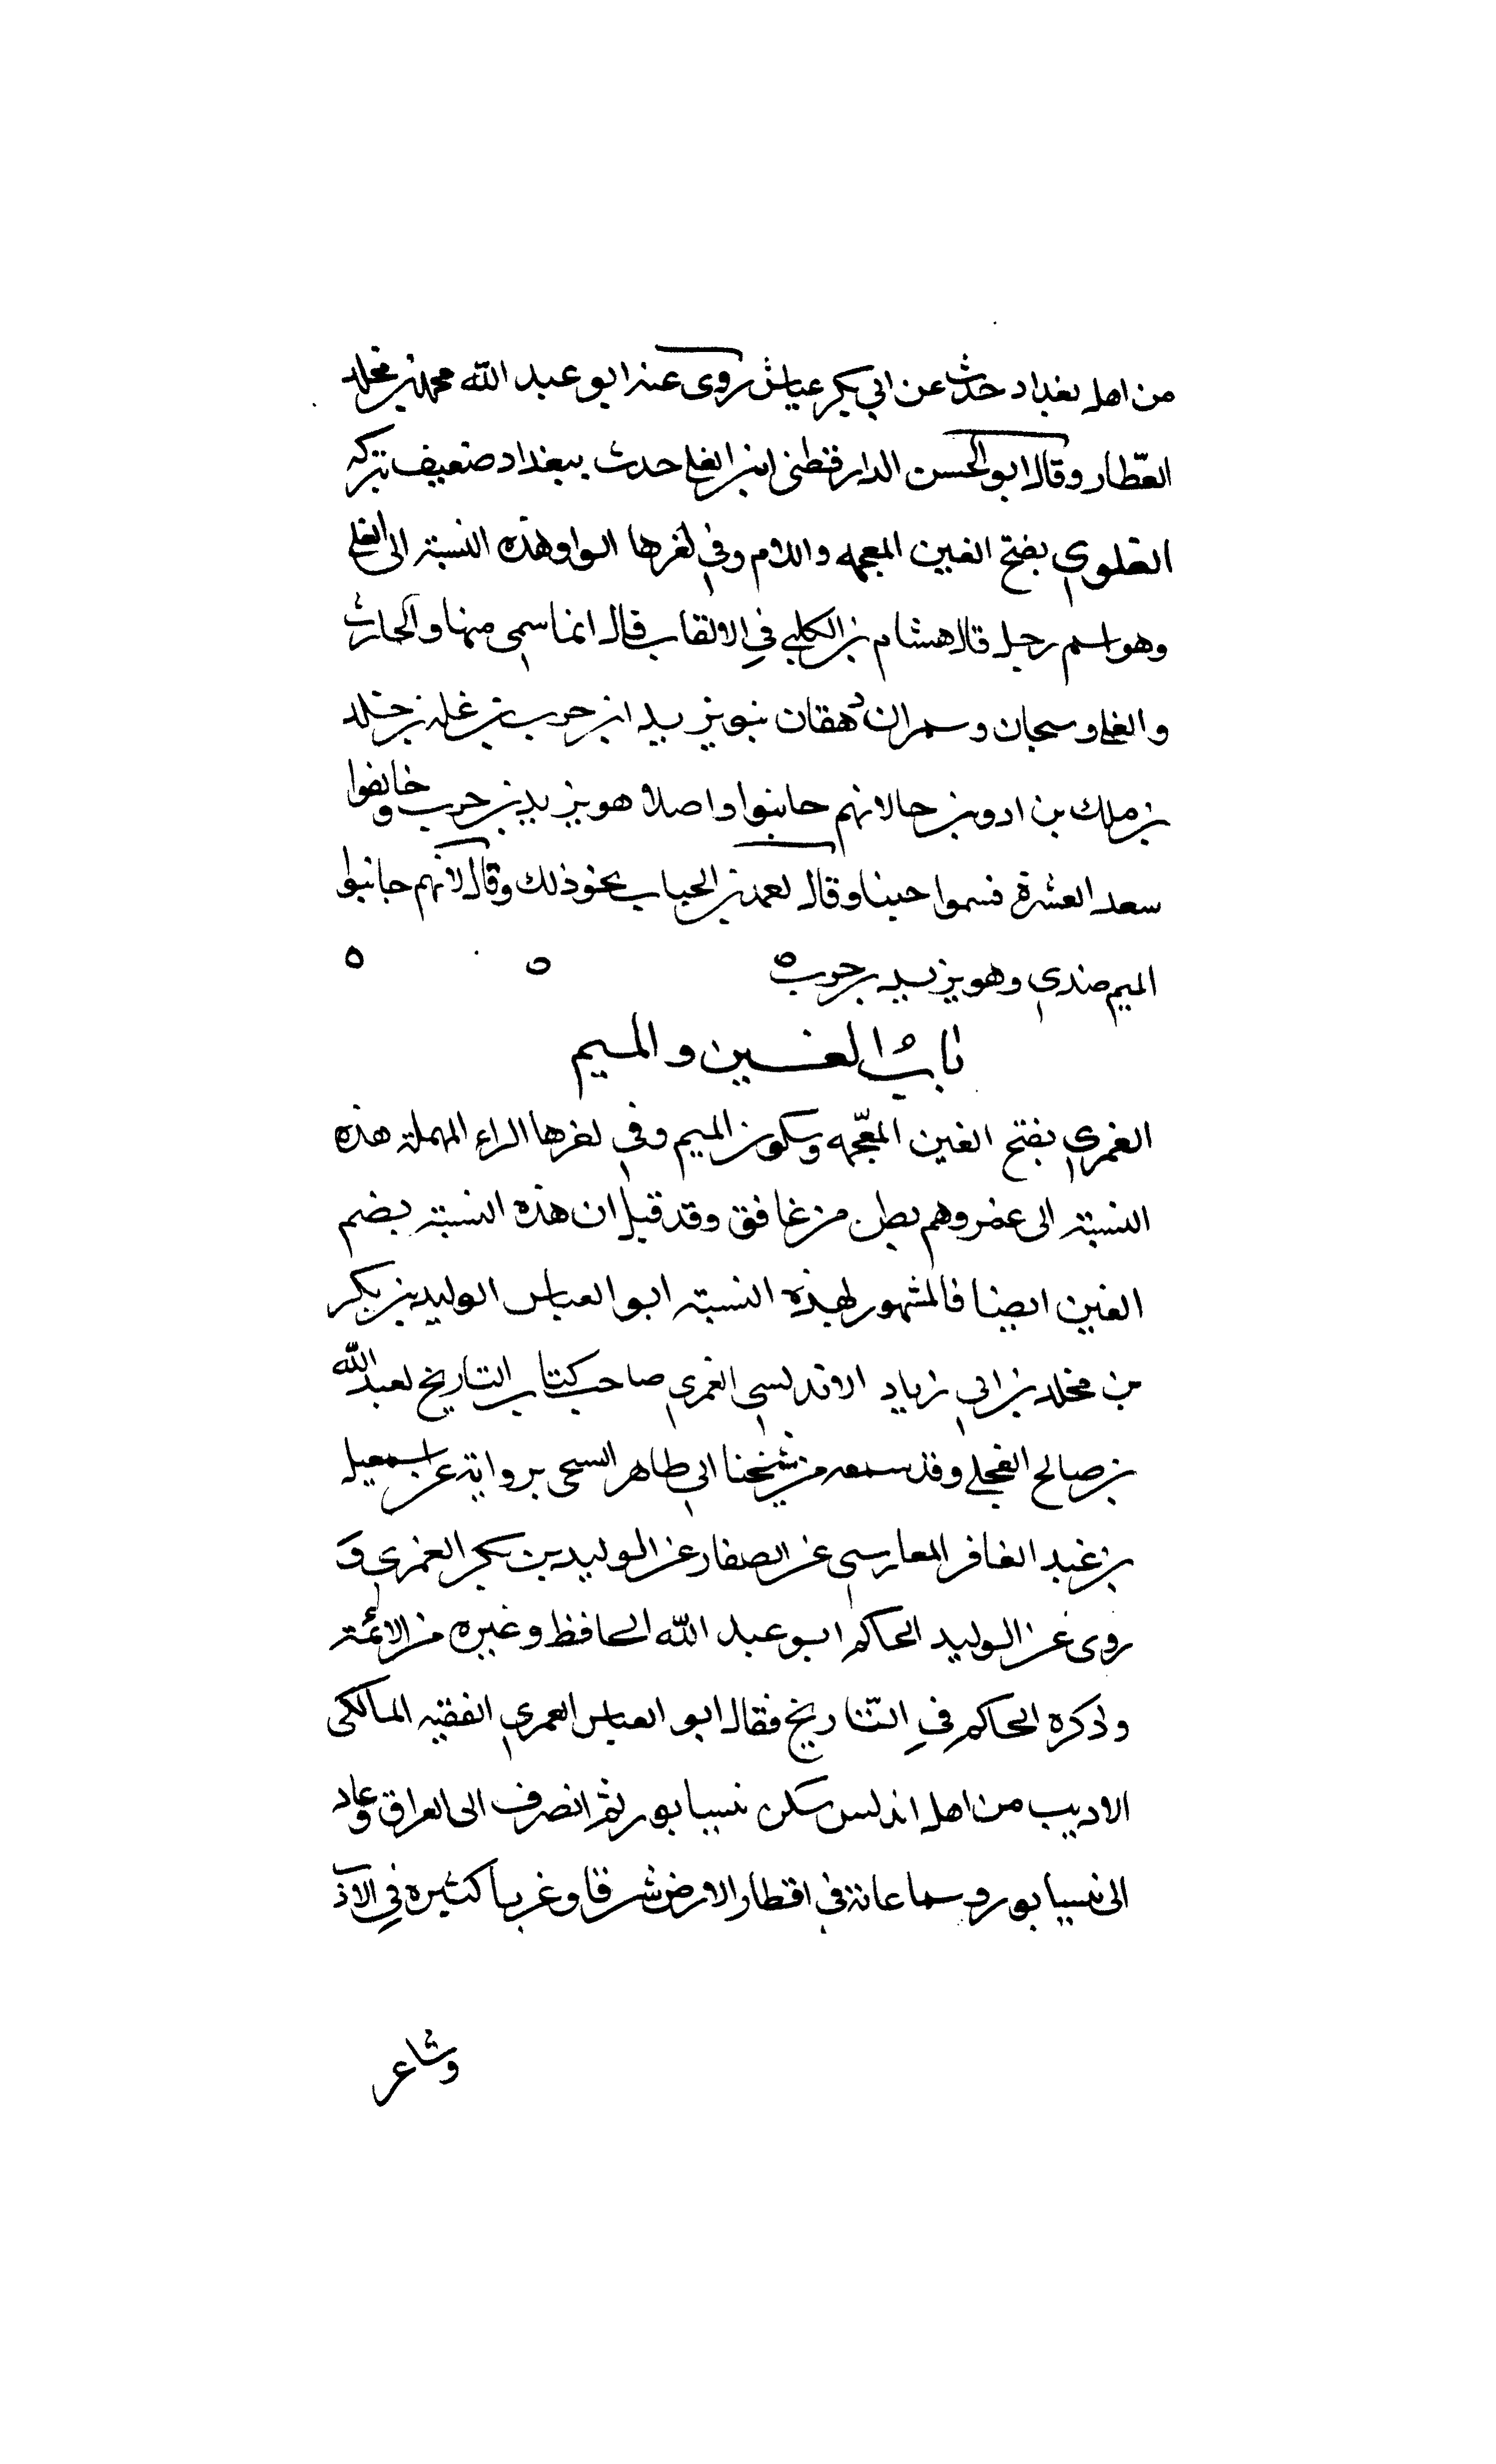 من اهل بغداد حدث عن ابي بكر عياش روى عنه ابو عبد الله محمد بن مخلد
العطار وقال ابو الحسن الدارقطنى ابن الغلي حدث ببغداد ضعيف تركه
الغلوي بفتح الغين المعجمه واللام وفي اخرها الواو هذه النسبة الى الغلي
وهو اسم رجل قال هشام بن الكلبي في الالقاب قال انما سمي منها والحارث
والغلي وسيحان وسمران وهقان بنو يزيد ابن حرب بن غله بن خلد
بن ملك بن ادد بن حالانهم جانبوا واصلا هو يزيد بن حرب وخالفوا
سعد العشرة فسموا جنبا وقال لعمد بن الحباب بنحو ذلك وقال لانهم جانبوا
الميم صندي وهو يزيد بن حرب ه ه ه
باب الغين والميم
الغمري بفتح الغين المعجمه وسكون الميم وفي اخرها الراء المهملة هذه
النسبة الى غمر وهم بطن من غافق وقد قيل ان هذه النسبة بضم
الغين ايضا فالمشهور بهذه النسبة ابو العباس الوليد بن بكر
من مخلد بن ابي زياد الاندلسي الغمري صاحب كتاب التاريخ لعبد الله
بن صالح العجلي وقد سمعه من شيخنا ابي طاهر السحى بروايته عن اسمعيل
بن عبد الغافر الفارسي عن الصفار عن الوليد بن بكر الغمري و
روى عن الوليد الحاكم ابو عبد الله الحافظ وغيره من الائمة
وذكره الحاكم في التاريخ فقال ابو العباس العمري الفقيه المالكي
الاديب من اهل اندلس سكن نيسابور ثم انصرف الى العراق وعاد
الى نيسابور وسماعاته في اقطار الارض شرقا وغربا كثيره في الاد
وشاعر